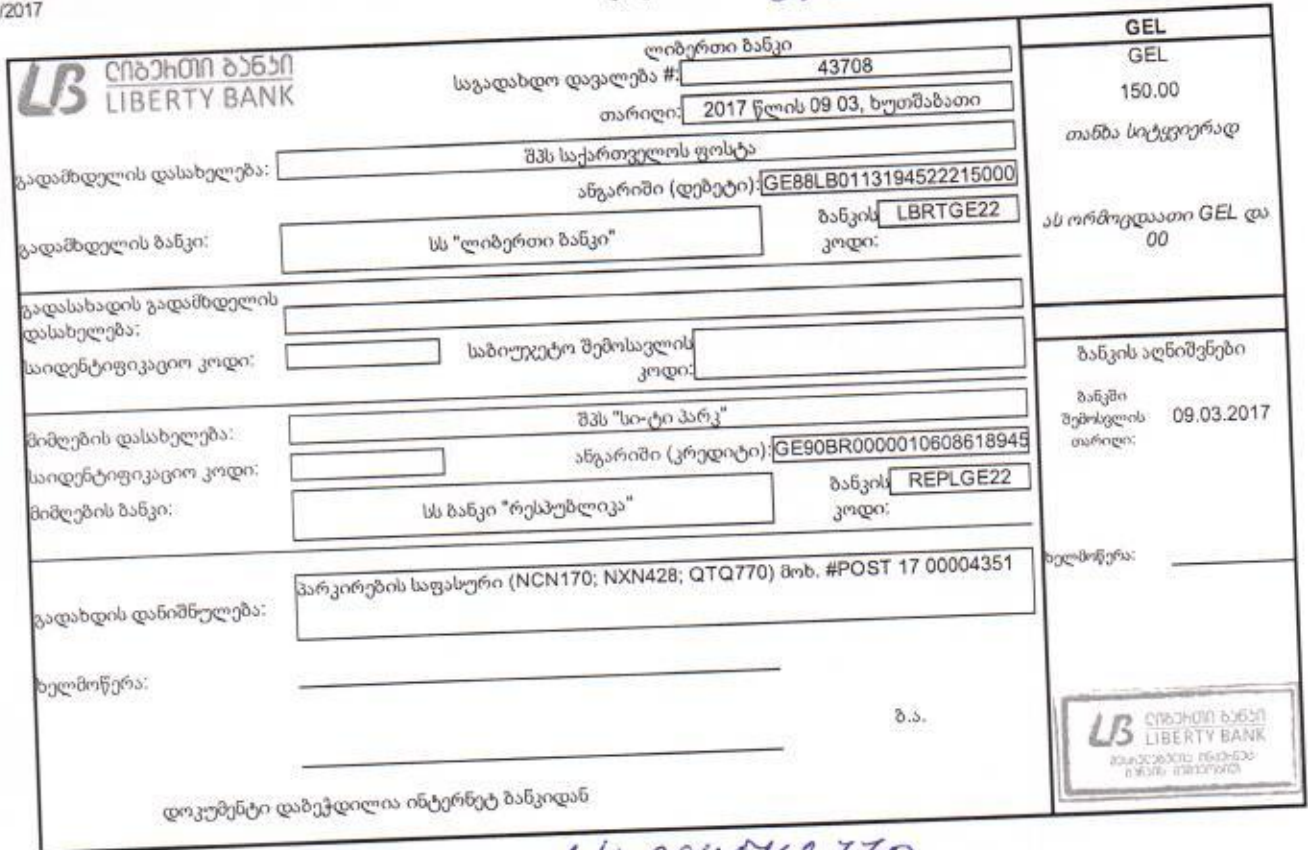 /2017
ლიბერთი ბანკი
LIBERTY BANK
ლიბერთი ბანკი
საგადახდო დავალება #: 43708
თარიღი: 2017 წლის 09 03, ხუთშაბათი
გადამხდელის დასახელება: შპს საქართველოს ფოსტა
ანგარიში (დებეტი): GE88LB0113194522215000
გადამხდელის ბანკი: სს "ლიბერთი ბანკი"
ბანკის კოდი: LBRTGE22
გადასახადის გადამხდელის
დასახელება:
საიდენტიფიკაციო კოდი:
საბიუჯეტო შემოსავლის
კოდი:
მიმღების დასახელება: შპს "სი-ტი პარკ"
საიდენტიფიკაციო კოდი:
ანგარიში (კრედიტი): GE90BR0000010608618945
მიმღების ბანკი: სს ბანკი "რესპუბლიკა"
ბანკის კოდი: REPLGE22
გადახდის დანიშნულება: პარკირების საფასური (NCN170; NXN428; QTQ770) მოხ. #POST 17 00004351
ხელმოწერა:
ბ.ა.
დოკუმენტი დაბეჭდილია ინტერნეტ ბანკიდან
GEL
GEL
150.00
თანხა სიტყვიერად
ას ორმოცდაათი GEL და
00
ბანკის აღნიშვნები
ბანკში
შემოსვლის
თარიღი:
09.03.2017
ხელმოწერა:
ლიბერთი ბანკი
LIBERTY BANK